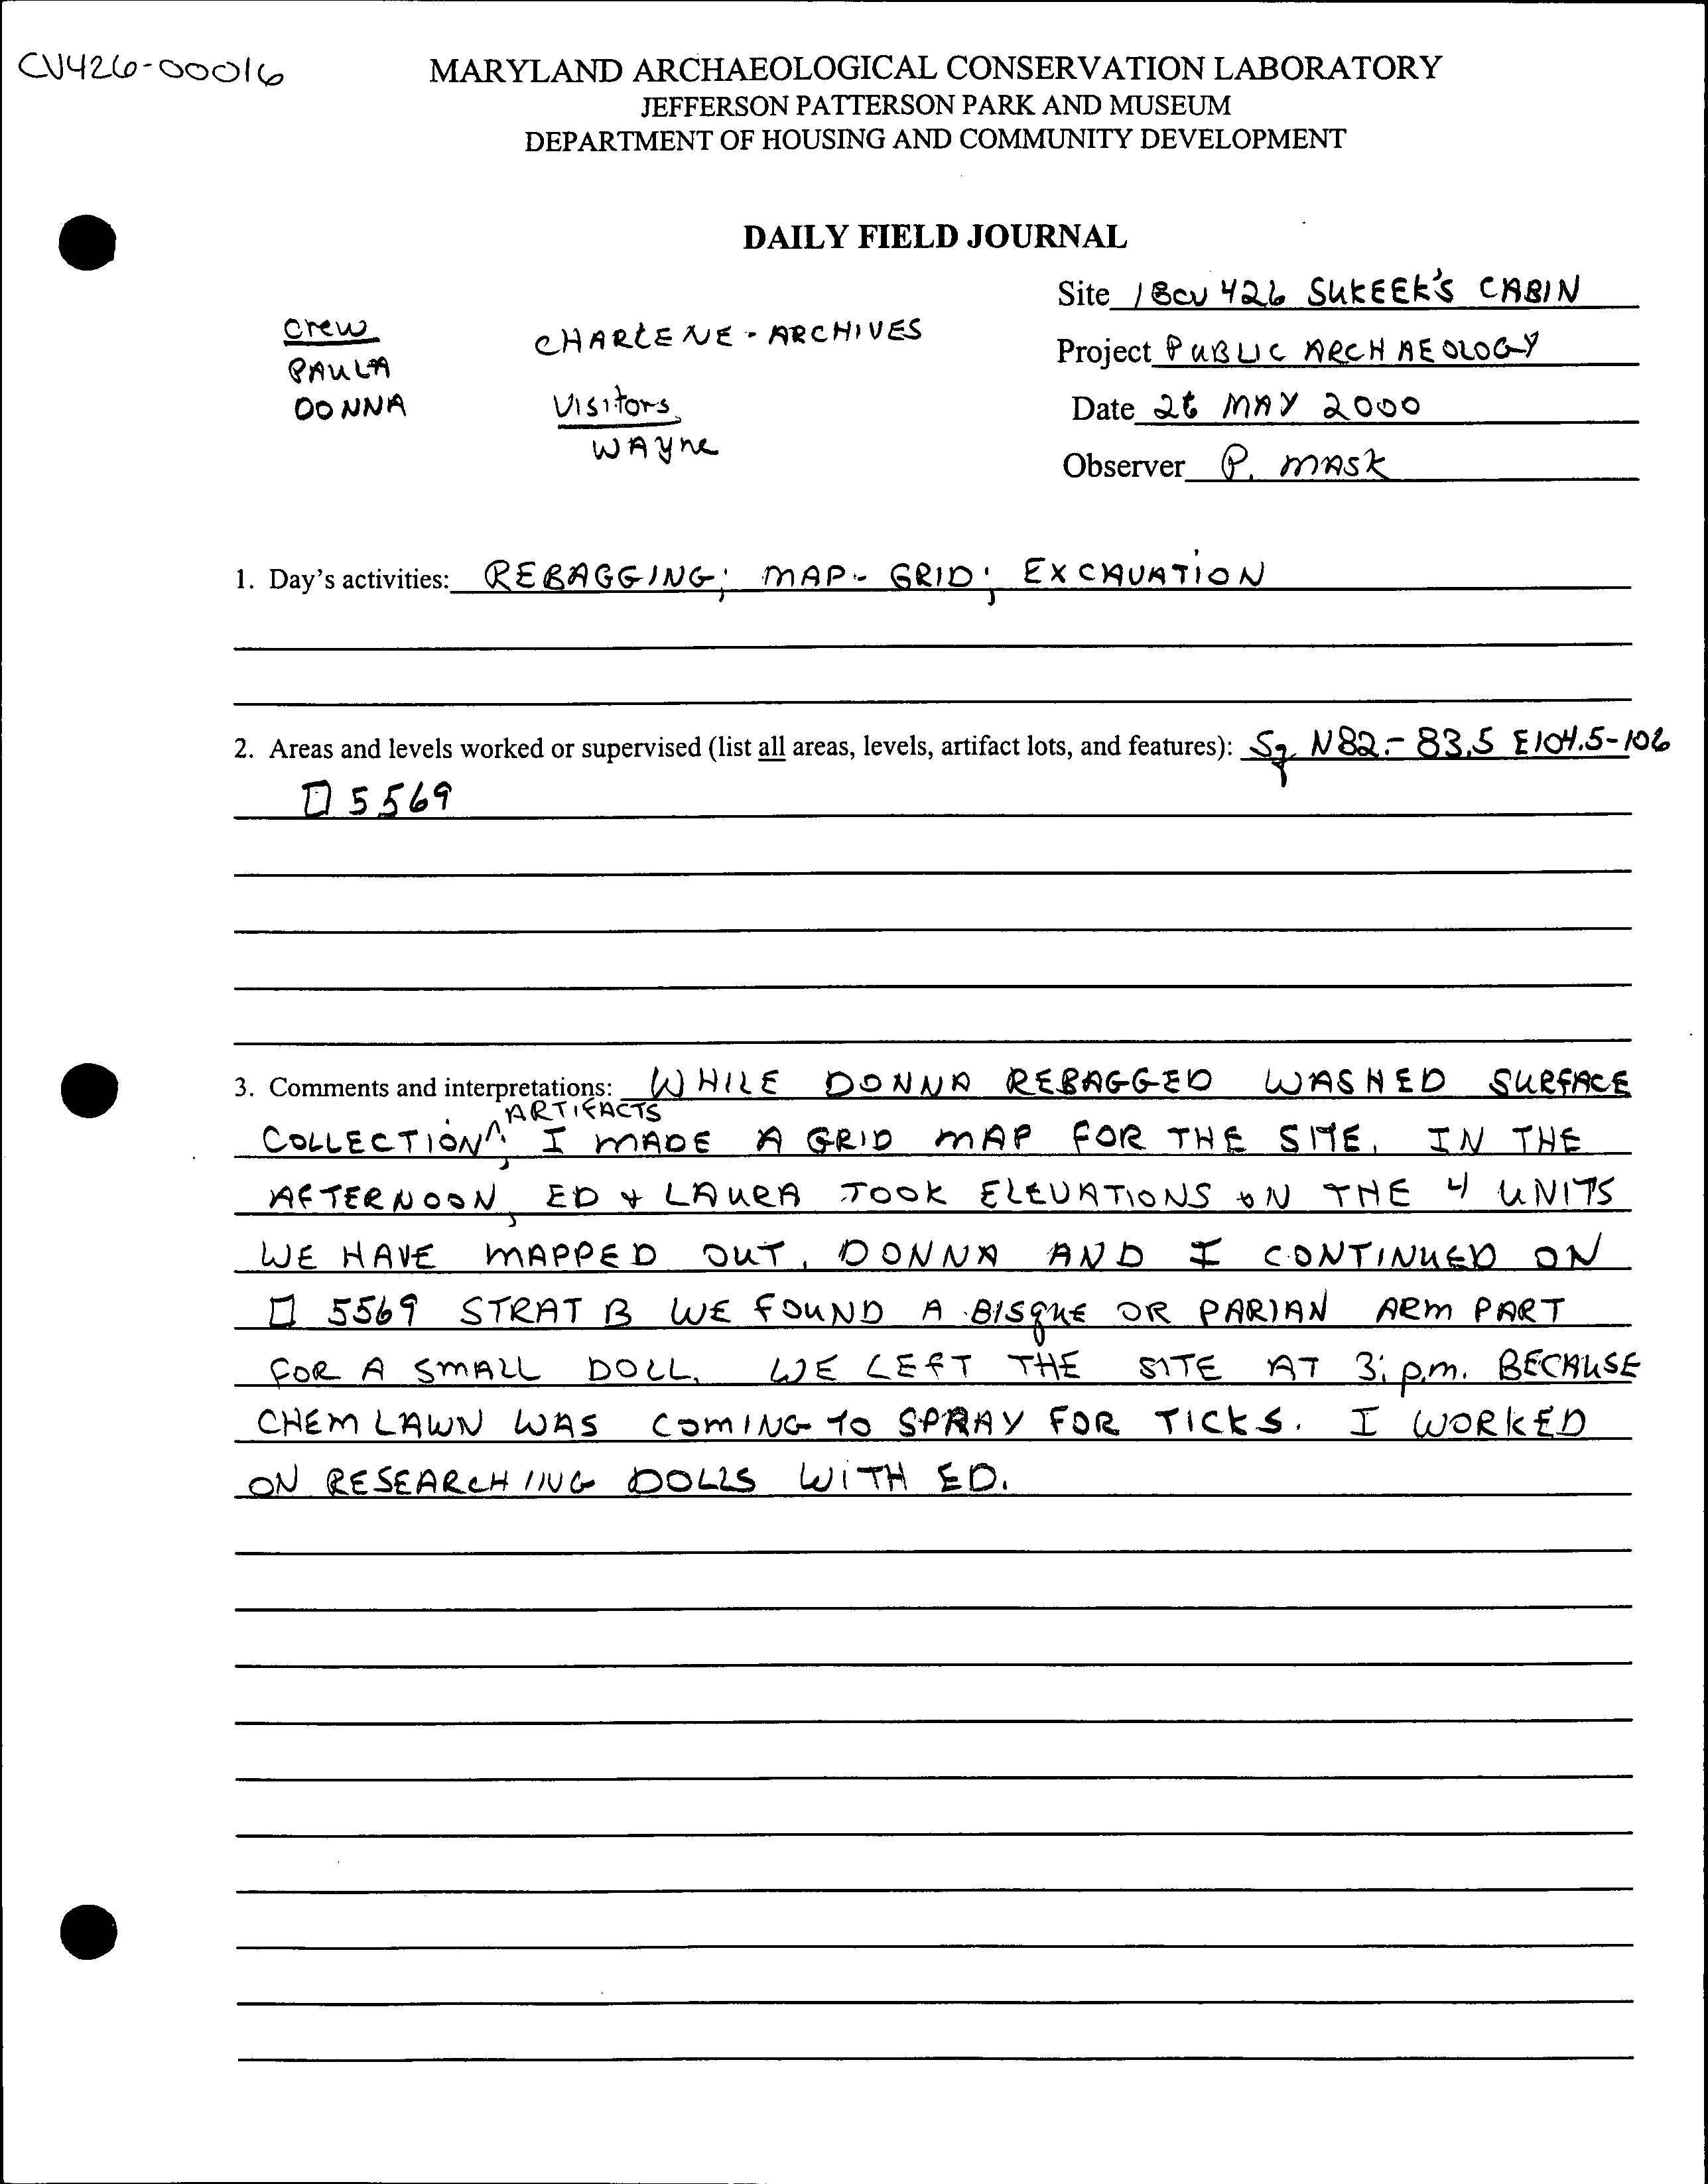 CV426-00016
MARYLAND ARCHAEOLOGICAL CONSERVATION LABORATORY
JEFFERSON PATTERSON PARK AND MUSEUM
DEPARTMENT OF HOUSING AND COMMUNITY DEVELOPMENT
DAILY FIELD JOURNAL
Site 18CV 426 SUKEEK'S CABIN
Project PUBLIC ARCHAEOLOGY
Date 26 MAY 2000
Observer P. MASK
Crew
PAULA
DONNA
CHARLENE - ARCHIVES
Visitors
WAYNE
1. Day's activities: REBAGGING; MAP - GRID; EXCAVATION
2. Areas and levels worked or supervised (list all areas, levels, artifact lots, and features): Sq N82 - 83.5 E104.5-106
□ 5569
3. Comments and interpretations: WHILE DONNA REBAGGED WASHED SURFACE
ARTIFACTS
COLLECTION^; I MADE A GRID MAP FOR THE SITE. IN THE
AFTERNOON, ED + LAURA TOOK ELEVATIONS ON THE 4 UNITS
WE HAVE MAPPED OUT. DONNA AND I CONTINUED ON
□ 5569 STRAT B WE FOUND A BISQUE OR PARIAN ARM PART
FOR A SMALL DOLL. WE LEFT THE SITE AT 3: p.m. BECAUSE
CHEM LAWN WAS COMING TO SPRAY FOR TICKS. I WORKED
ON RESEARCHING DOLLS WITH ED.